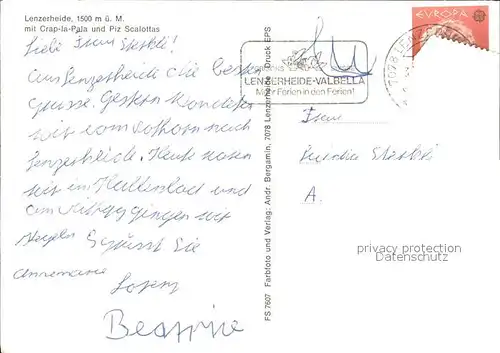 Lenzerheide, 1500 m ü. M.
mit Crap-la-Pala und Piz Scalottas
Liebi Frau
Aus Lenzerheide die besten
Grüsse. Gestern wanderten
wir vom Rothorn nach
Lenzerheide. Heute waren
wir im Hallenbad und
am Mittag gingen wir
Kegeln Grüsst Sie
Annemarie
Beatrice
FS 7607 Farbfoto und Verlag: Andr. Bergamin, 7078 Lenzerheide Druck EPS
EVROPA
7078 LENZERHEIDE
LENZERHEIDE-VALBELLA
Mehr Ferien in den Ferien!
Frau
A.
privacy protection
Datenschutz